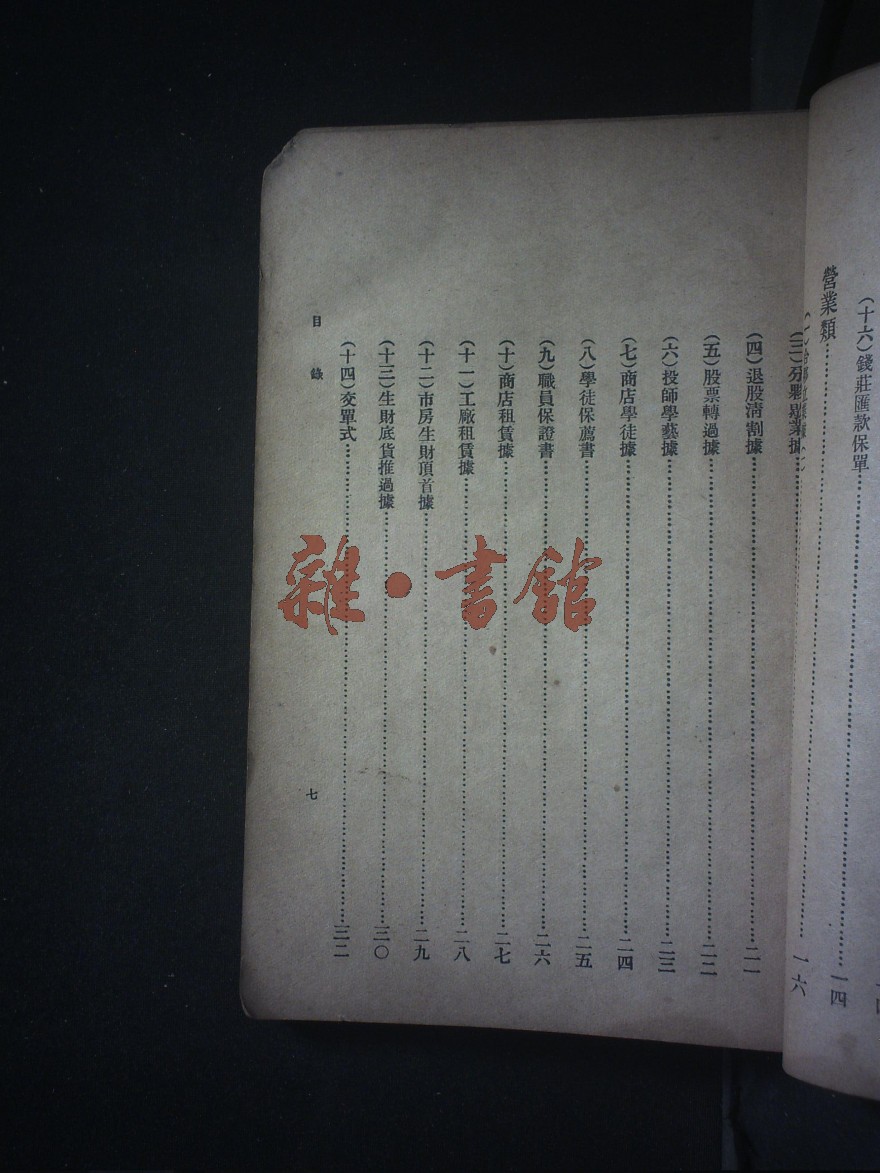 (十六)錢莊匯款保單
營業類……一四
一六
(三)分夥異業據
(四)退股淸割據……二一
(五)股票轉過據……二二
(六)投師學藝據……二三
(七)商店學徒據……二四
(八)學徒保薦書……二五
(九)職員保證書……二六
(十)商店租賃據……二七
(十一)工廠租賃據……二八
(十二)市房生財頂首據……二九
(十三)生財底貨推過據……三〇
(十四)交單式……三二
目錄
七
雜·書館